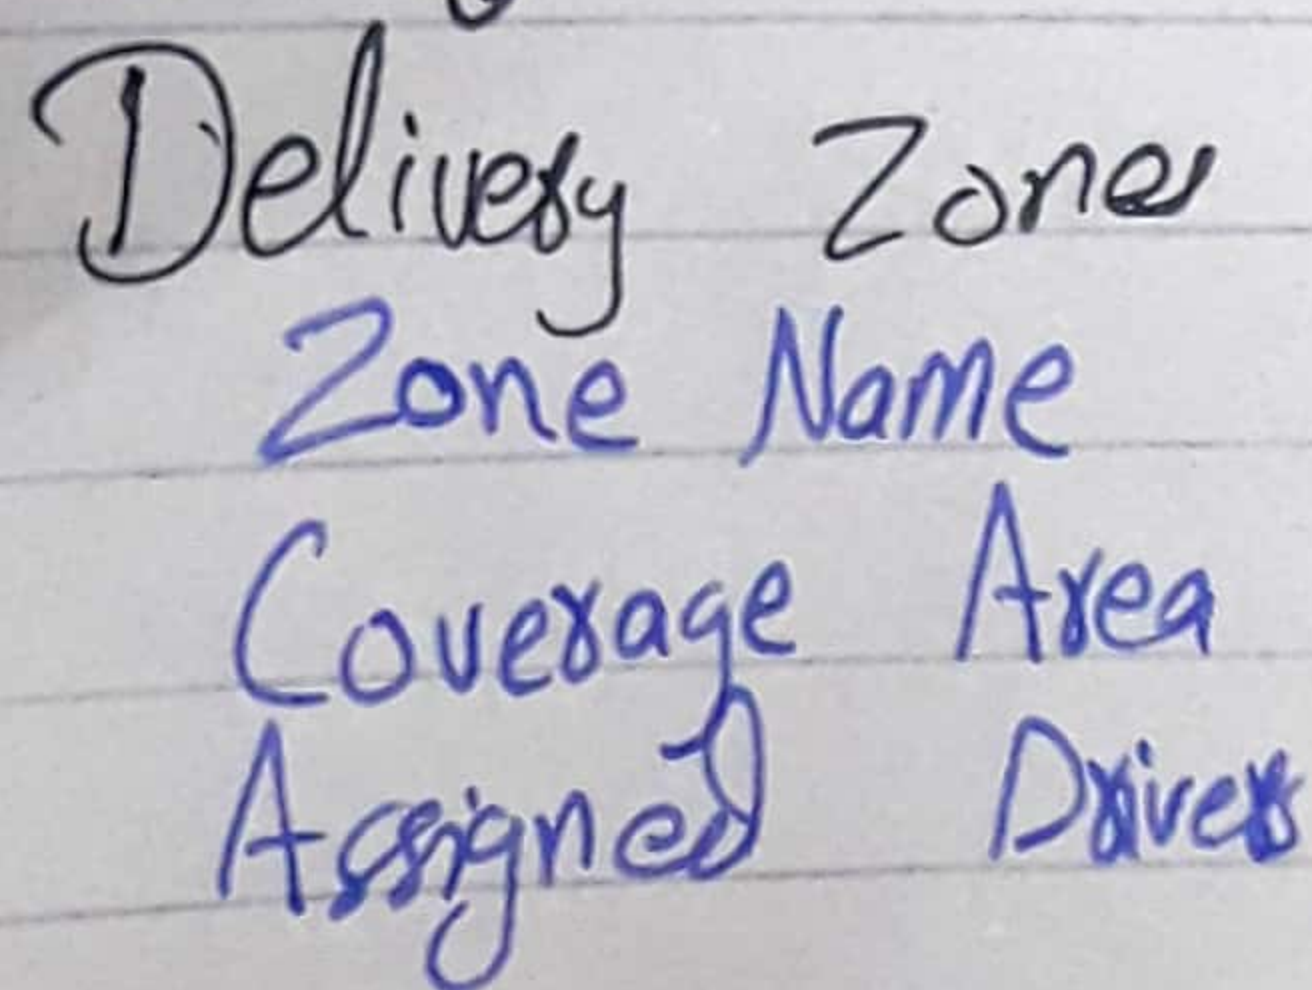 Delivery Zones
Zone Name
Coverage Area
Assigned Drivers